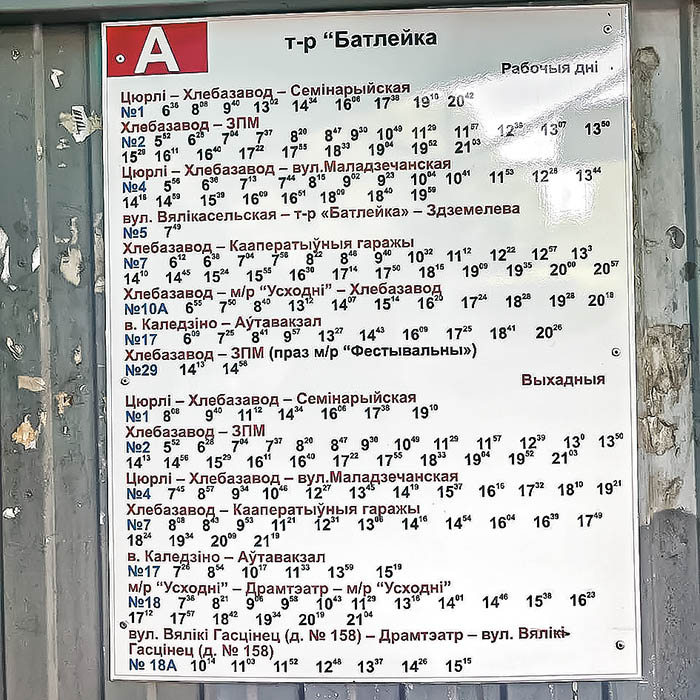 А
т-р “Батлейка
Рабочыя дні
Цюрлі – Хлебазавод – Семінарыйская
№1 6³⁶ 8⁰⁸ 9⁴⁰ 13⁰² 14³⁴ 16⁰⁶ 17³⁸ 19¹⁰ 20⁴²
Хлебазавод – ЗПМ
№2 5⁵² 6²⁸ 7⁰⁴ 7³⁷ 8²⁰ 8⁴⁷ 9³⁰ 10⁴⁹ 11²⁹ 11⁵⁷ 12³⁹ 13⁰⁷ 13⁵⁰
15²⁸ 16¹¹ 16⁴⁰ 17²² 17⁵⁵ 18³³ 19⁰⁴ 19⁵² 21⁰³
Цюрлі – Хлебазавод – вул.Маладзечанская
№4 5⁵⁶ 6³⁶ 7¹³ 7⁴⁴ 8¹⁵ 9⁰² 9²³ 10⁰⁴ 10⁴¹ 11⁵³ 12²⁸ 13⁴⁴
14¹⁸ 14⁵⁹ 15³⁹ 16⁰⁹ 16⁵¹ 18⁰⁹ 18⁴⁰ 19⁵⁹
вул. Вялікасельская – т-р «Батлейка» – Здземелева
№5 7⁴⁹
Хлебазавод – Кааператыўныя гаражы
№7 6¹² 6³⁸ 7⁰⁴ 7⁵⁶ 8²² 8⁴⁸ 9⁴⁰ 10³² 11¹² 12²² 12⁵⁷ 13³
14¹⁰ 14⁴⁵ 15²⁴ 15⁵⁵ 16³⁰ 17¹⁴ 17⁵⁰ 18¹⁵ 19⁰⁹ 19³⁵ 20⁰⁰ 20⁵⁷
Хлебазавод – м/р “Усходні” – Хлебазавод
№10А 6⁵⁵ 7⁵⁰ 8⁴⁰ 13¹² 14⁰⁷ 15¹⁴ 16²⁰ 17²⁴ 18²⁸ 19²⁸ 20¹⁸
в. Каледзіно – Аўтавакзал
№17 6⁰⁹ 7²⁵ 8⁴¹ 9⁵⁷ 13²⁷ 14⁴³ 16⁰⁹ 17²⁵ 18⁴¹ 20²⁶
Хлебазавод – ЗПМ (праз м/р “Фестывальны»)
№29 14¹³ 14⁵⁶
Выхадныя
Цюрлі – Хлебазавод – Семінарыйская
№1 8⁰⁸ 9⁴⁰ 11¹² 14³⁴ 16⁰⁶ 17³⁸ 19¹⁰
Хлебазавод – ЗПМ
№2 5⁵² 6²⁸ 7⁰⁴ 7³⁷ 8²⁰ 8⁴⁷ 9³⁰ 10⁴⁹ 11²⁹ 11⁵⁷ 12³⁹ 13⁰ 13⁵⁰
14¹³ 14⁵⁶ 15²⁹ 16¹¹ 16⁴⁰ 17²² 17⁵⁵ 18³³ 19⁰⁴ 19⁵² 21⁰³
Цюрлі – Хлебазавод – вул.Маладзечанская
№4 7⁴⁵ 8⁵⁷ 9³⁴ 10⁴⁶ 12²⁷ 13⁴⁵ 14¹⁹ 15³⁷ 16¹⁶ 17³² 18¹⁰ 19²¹
Хлебазавод – Кааператыўныя гаражы
№7 8⁰⁸ 8⁴³ 9⁵³ 11²¹ 12³¹ 13⁰⁶ 14¹⁶ 14⁵⁴ 16⁰⁴ 16³⁹ 17⁴⁹
18²⁴ 19³⁴ 20⁰⁹ 21¹⁹
в. Каледзіно – Аўтавакзал
№17 7²⁶ 8⁵⁴ 10¹⁷ 11³³ 13⁵⁹ 15¹⁹
м/р “Усходні” – Драмтэатр – м/р “Усходні”
№18 7³⁶ 8²¹ 9⁰⁶ 9⁵⁸ 10⁴³ 11²⁹ 13¹⁶ 14⁰¹ 14⁴⁶ 15³⁸ 16²³
17¹² 17⁵⁷ 18⁴² 19³⁴ 20¹⁹ 21⁰⁴
вул. Вялікі Гасцінец (д. № 158) – Драмтэатр – вул. Вялікі
Гасцінец (д. № 158)
№ 18А 10¹⁴ 11⁰³ 11⁵² 12⁴⁸ 13³⁷ 14²⁶ 15¹⁵